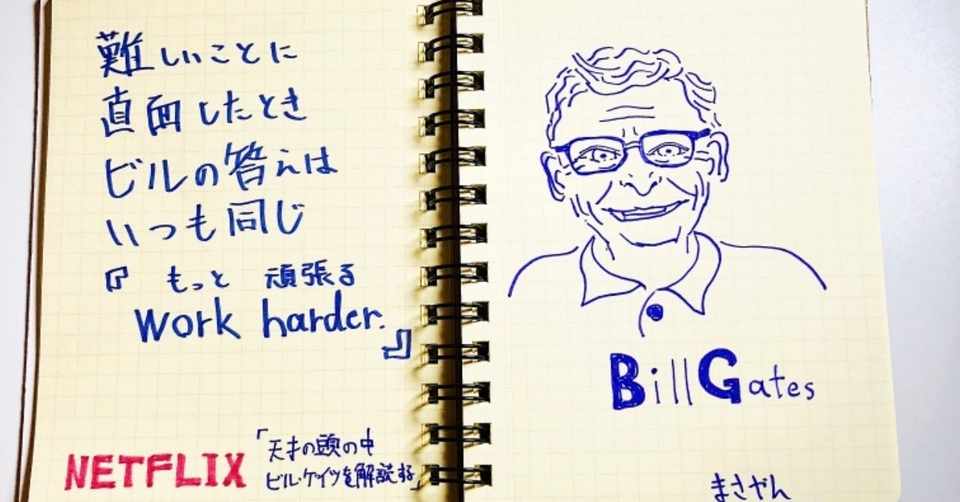 難しいことに
直面したとき
ビルの答えは
いつも同じ
『 もっと 頑張る
work harder.』
NETFLIX
「天才の頭の中
ビル・ゲイツを解説する」
Bill Gates
まさやん